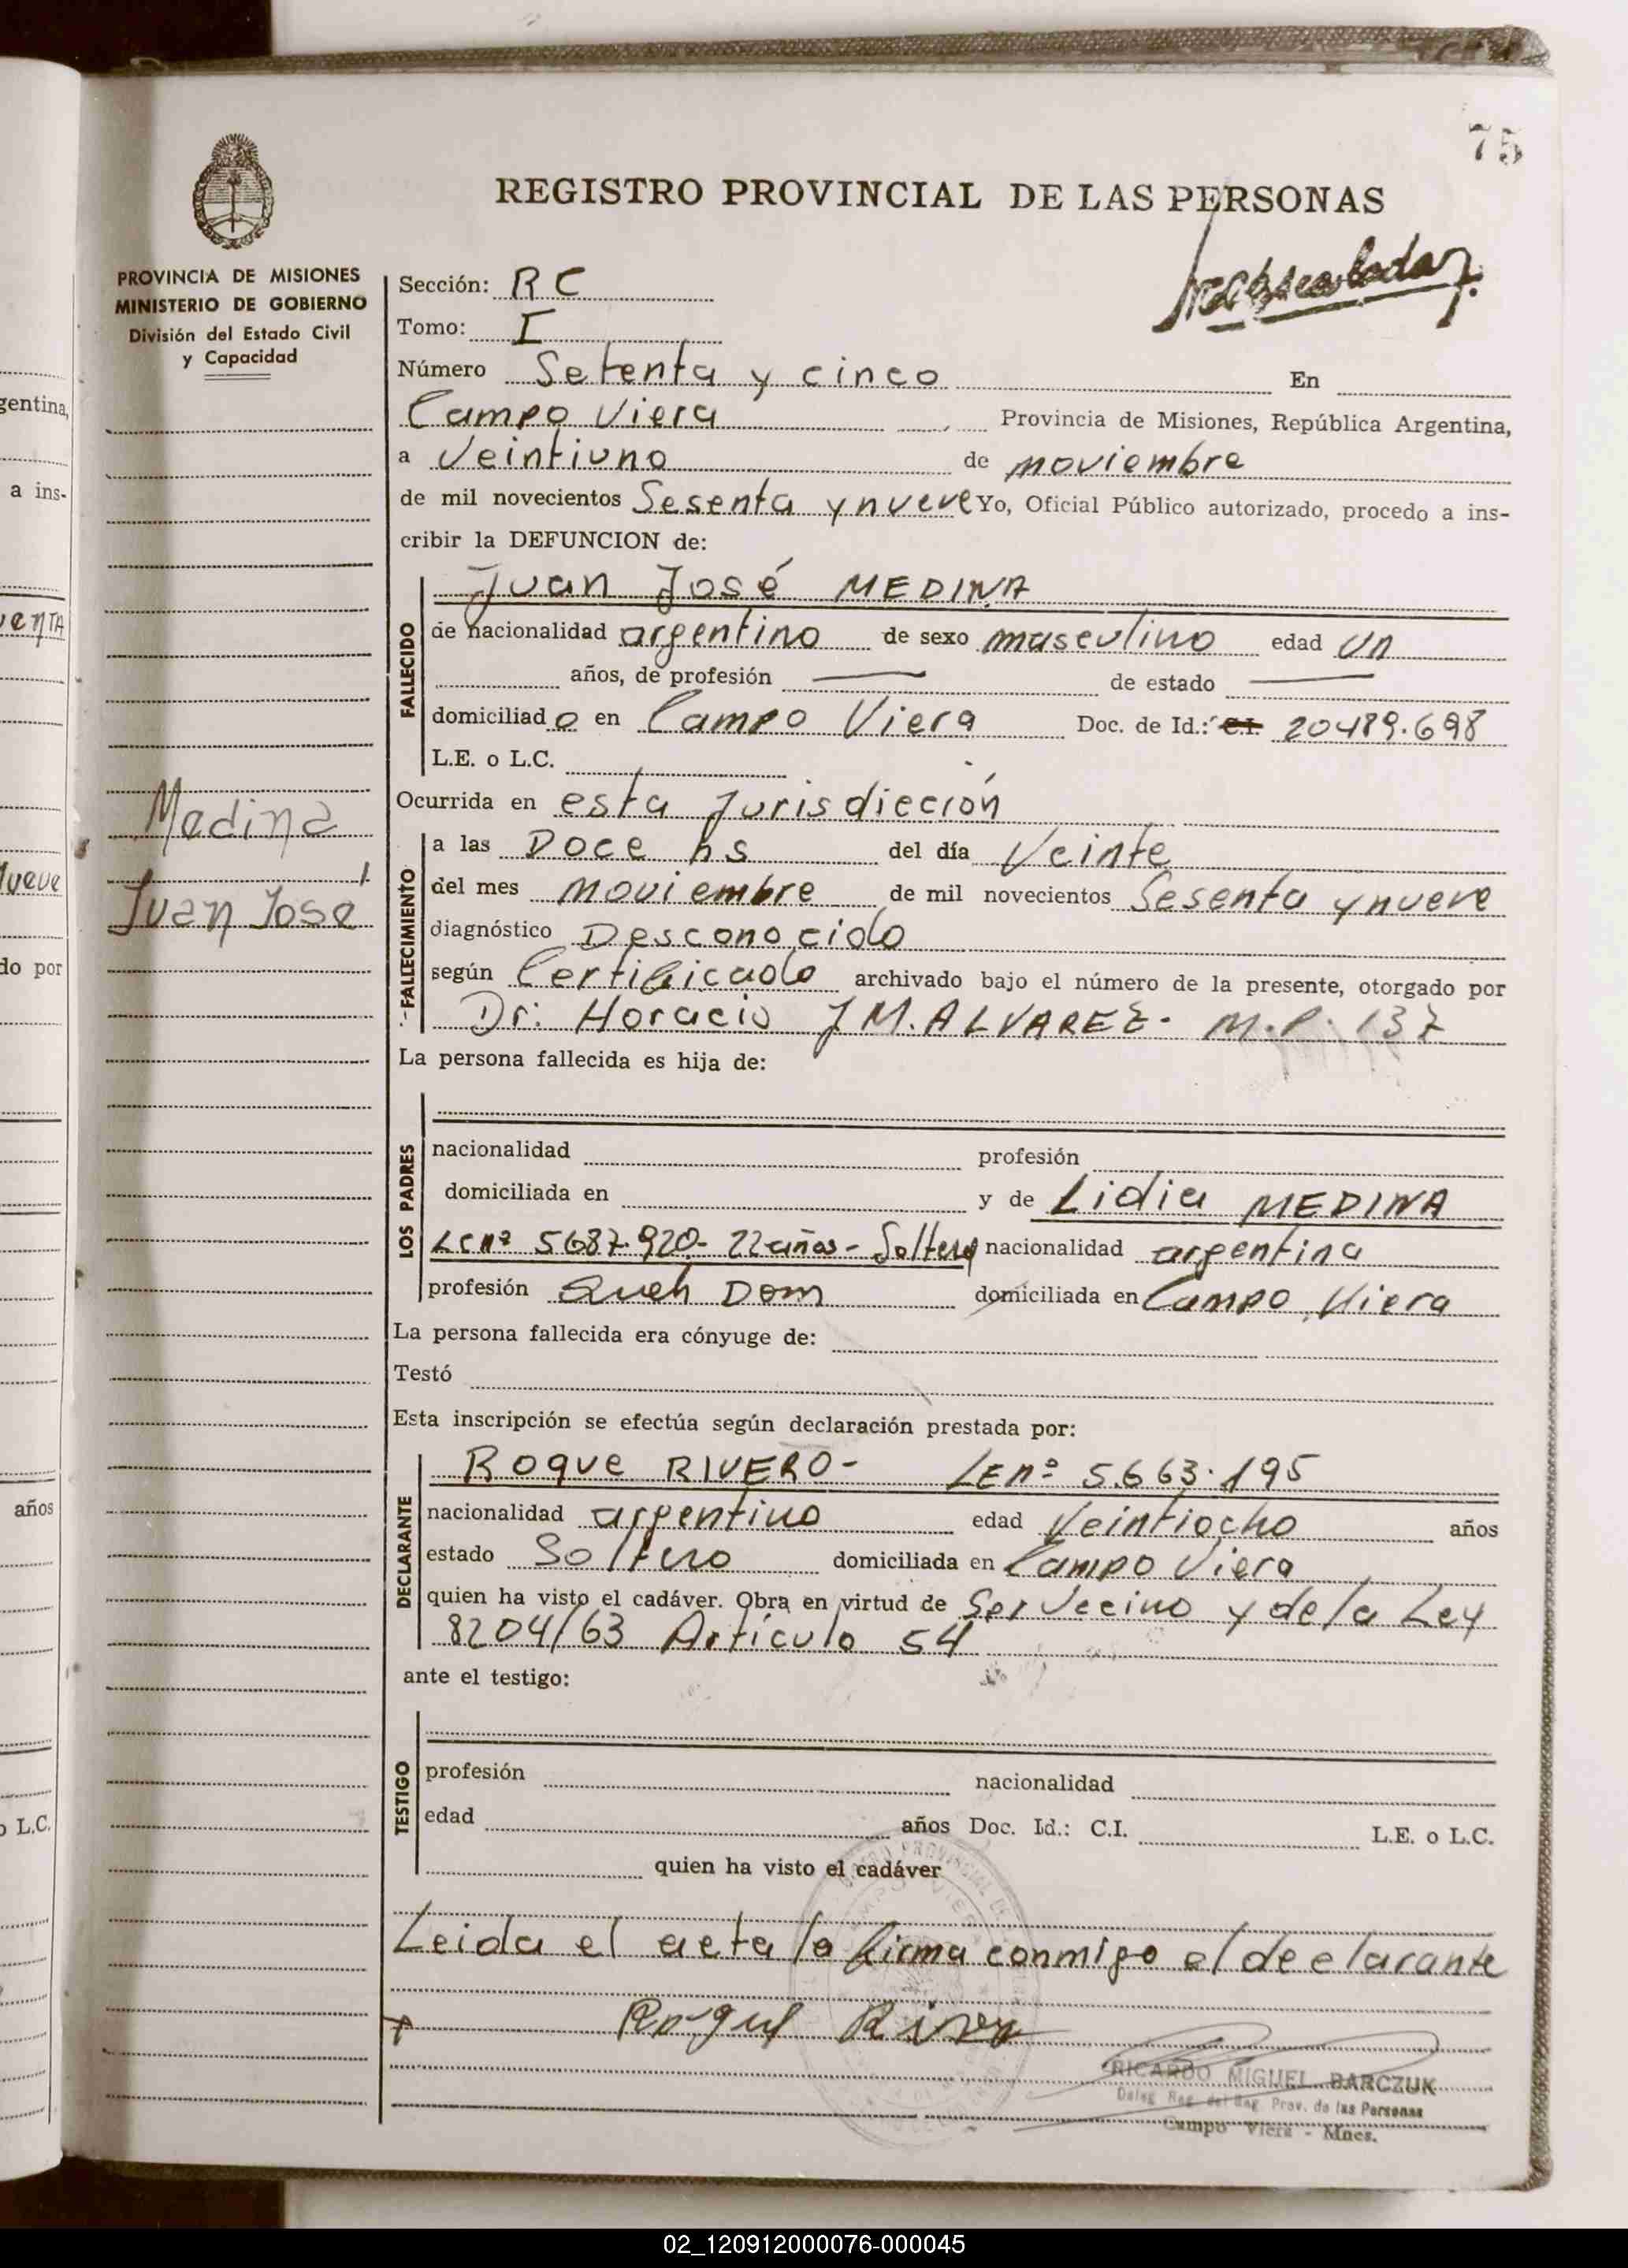 75
REGISTRO PROVINCIAL DE LAS PERSONAS
PROVINCIA DE MISIONES
MINISTERIO DE GOBIERNO
División del Estado Civil
y Capacidad
Sección: RC
Tomo: I
Número Setenta y cinco En
Campo Viera Provincia de Misiones, República Argentina,
a Veintiuno de noviembre
de mil novecientos Sesenta y nueve Yo, Oficial Público autorizado, procedo a ins-
cribir la DEFUNCION de:
FALLECIDO
Juan José MEDINA
de nacionalidad argentino de sexo masculino edad Un
años, de profesión — de estado —
domiciliado en Campo Viera Doc. de Id.: C.I. 20489.698
L.E. o L.C.
Ocurrida en esta Jurisdiección
Medina
Juan José
FALLECIMIENTO
a las Doce hs del día Veinte
del mes noviembre de mil novecientos Sesenta y nueve
diagnóstico Desconocido
según Certificado archivado bajo el número de la presente, otorgado por
Dr: Horacio J M. ALVAREZ - M.P. 137
La persona fallecida es hija de:
LOS PADRES
nacionalidad profesión
domiciliada en y de Lidia MEDINA
LC nº 5687.920- 22 años - Soltera nacionalidad argentina
profesión Queh Dom domiciliada en Campo Viera
La persona fallecida era cónyuge de:
Testó
Esta inscripción se efectúa según declaración prestada por:
DECLARANTE
Roque RIVERO- LE nº 5.663.195
nacionalidad argentino edad Veintiocho años
estado Soltero domiciliada en Campo Viera
quien ha visto el cadáver. Obra en virtud de Ser Vecino y de la Ley
8204/63 Artículo 54
ante el testigo:
TESTIGO
profesión nacionalidad
edad años Doc. Id.: C.I. L.E. o L.C.
quien ha visto el cadáver
Leida el acta la firma conmigo el declarante
RICARDO MIGUEL BARCZUK
Deleg. Reg. del Reg. Prov. de las Personas
Campo Viera - Mnes.
gentina,
a ins-
do por
años
o L.C.
02_120912000076-000045